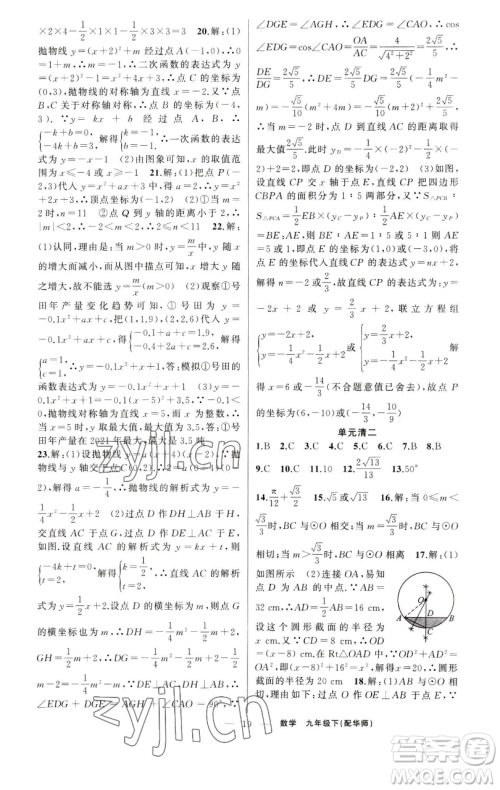 ×2×4－1/2×2×1－1/2×3×1＝3 20.解:(1)
∵抛物线y＝(x＋2)²＋m经过点A(－1,0),
∴0＝1＋m,∴m＝－1,∴二次函数的表达式为
y＝(x＋2)²－1＝x²＋4x＋3,∴点C的坐标为
(0,3),抛物线的对称轴为直线x＝－2.又∵点
B,C关于对称轴对称,∴点B的坐标为(－4,
3).∵y＝kx＋b经过点A,B,∴
{－k＋b＝0, －4k＋b＝3, 解得{k＝－1, b＝－1, ∴一次函数的表达
式为y＝－x－1 (2)由图象可知,x的取值范
围为x≤－4或x≥－1 21.解:(1)把点P(－
2,3)代入y＝x²＋ax＋3中,∴a＝2,∴y＝x²＋
2x＋3,∴顶点坐标为(－1,2) (2)①当m＝2
时,n＝11 ②点Q到y轴的距离小于2,∴
|m|＜2,∴－2＜m＜2,∴2≤n＜11 22.解:
(1)认同,理由是:当m＞0时,y＝m/x中,y随x
的增大而减小,而从图中描点可知,x增大y随之
增大,故不能选y＝m/x(m＞0) (2)观察①号
田年产量变化趋势可知,①号田为y＝
－0.1x²＋ax＋c,把(1,1.9),(2,2.6)代入y＝
－0.1x²＋ax＋c,得{－0.1＋a＋c＝1.9, －0.4＋2a＋c＝2.6, 解得
{a＝1, c＝1,
函数表达式为y＝－0.1x²＋x＋1
抛物线对称轴为直线x＝5,∴①号
田年产量在2021年最大,最大是3.5吨
23.解:(1)∵抛物线y＝ax²＋
y轴交于点C(0,2),∴
解得∴抛物线的解析式为y＝－1/4x²
－1/2x＋2 (2)过点D作DH⊥AB于点H,
交直线AC于点G,过点D作DE⊥AC于点
E.设直线AC的解析式为y＝kx＋t,则
{－4k＋t＝0, t＝2, 解得{k＝1/2, t＝2, ∴直线AC的解析式为
y＝1/2x＋2.设点D的横坐标为m,则点G
的横坐标也为m,∴DH＝－1/4m²－1/2m＋2,
GH＝1/2m＋2,∴DG＝－1/4m²－1/2m＋2－
1/2m－2＝－1/4m²－m.∵DE⊥AC,DH⊥AB,∴
∠EDG＋∠DGE＝∠AGH＋∠CAO＝90°.∵
∠DGE＝∠AGH,∴∠EDG＝∠CAO,∴cos
∠EDG＝cos∠CAO＝OA/AC＝4/√(4²＋2²)＝2√5/5,∴
DE/DG＝2√5/5,∴DE＝2√5/5DG＝2√5/5(－1/4m²－
m)＝－√5/10(m²＋4m)＝－√5/10(m＋2)²＋2√5/5,
∴当m＝－2时,点D到直线AC的距离取得
最大值.此时yD＝－1/4×(－2)²－1/2×(－2)＋
2＝2,即点D的坐标为(－2,2) (3)如图,设
直线CP交x轴于点E,直线CP把四边形
CBPA的面积分为1∶5两部分,又∵S△PCB∶
S△PCA＝1/2EB×(yC－yP)∶1/2AE×(yC－yP)
＝BE∶AE,则BE∶AE＝1∶5或5∶1,则AE
＝5或1,即点E的坐标为(1,0)或(－3,0).将
点E的坐标代入直线CP的表达式y＝nx＋2,
解得n＝－2或2/3,故直线CP的表达式为y＝
－2x＋2或y＝2/3x＋2,联立方程组
{y＝－2x＋2, y＝－1/4x²－1/2x＋2 或{y＝2/3x＋2, y＝－1/4x²－1/2x＋2, 解
得x＝6或－14/3(不合题意值已舍去),故点P
的坐标为(6,－10)或(－14/3,－10/9)
单元清二
1.B 2.C 3.C 4.B 5.C 6.C 7.B 8.B
9.C 10.C 11.10 12.2√13/13 13.50°
14.π/12＋√3/2 15.2√13 16.解:当0≤m＜
√3/3时,BC与⊙O相交;当m＝√3/3时,BC与
⊙O相切;当m＞√3/3时,BC与⊙O相离 17.解:(1)
如图所示 (2)连接OA,易知
OD⊥AB于点D.∵AB＝
32 cm,∴AD＝1/2AB＝16 cm.
设这个圆形截面的半径为
x cm.又∵CD＝8 cm,∴OD
＝(x－8)cm.在Rt△OAD中,∵OD²＋AD²＝
OA²,即(x－8)²＋16²＝x²,解得x＝20,∴圆形
截面的半径为20 cm 18.解:(1)∵AB是
—19— 数学 九年级下(配华师)